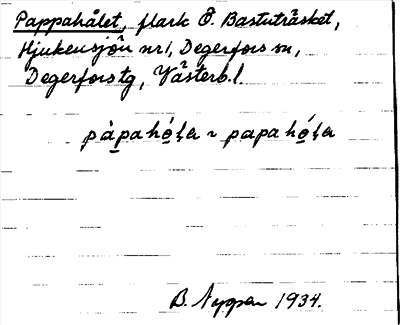 Pappahålet, flark Ö. Bastuträsket,
Hjukensjön nr 1, Degerfors sn,
Degerfors tg, Västerb. l.
pàpahó̠ḷa ~ papahó̠ḷa
B. Nygren 1934.